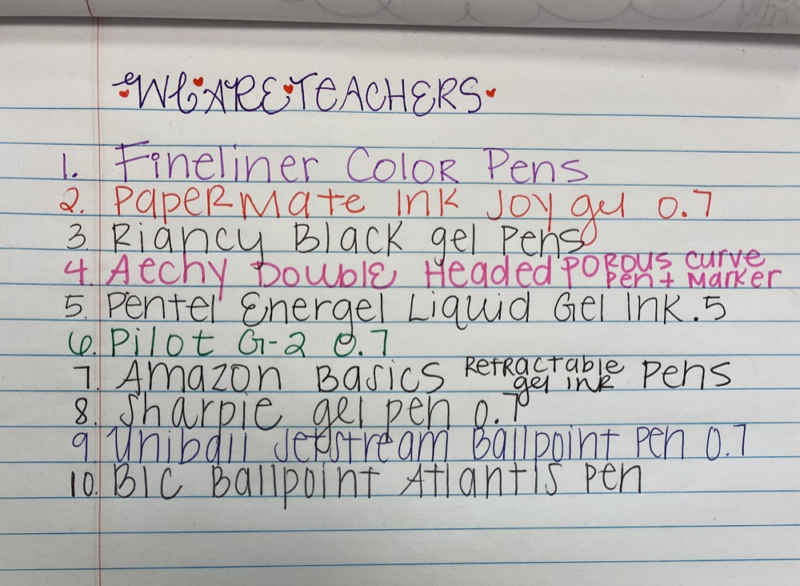 WE ARE TEACHERS
1. Fineliner Color Pens
2. PapeRMate Ink Joy gel 0.7
3. Riancy Black gel Pens
4. Aechy Double Headed POROUS curve pen + Marker
5. Pentel Energel Liquid Gel Ink .5
6. Pilot G-2 0.7
7. Amazon Basics Retractable gel ink Pens
8. Sharpie gel pen 0.7
9. Uniball Jetstream Ballpoint Pen 0.7
10. BIC Ballpoint Atlantis Pen